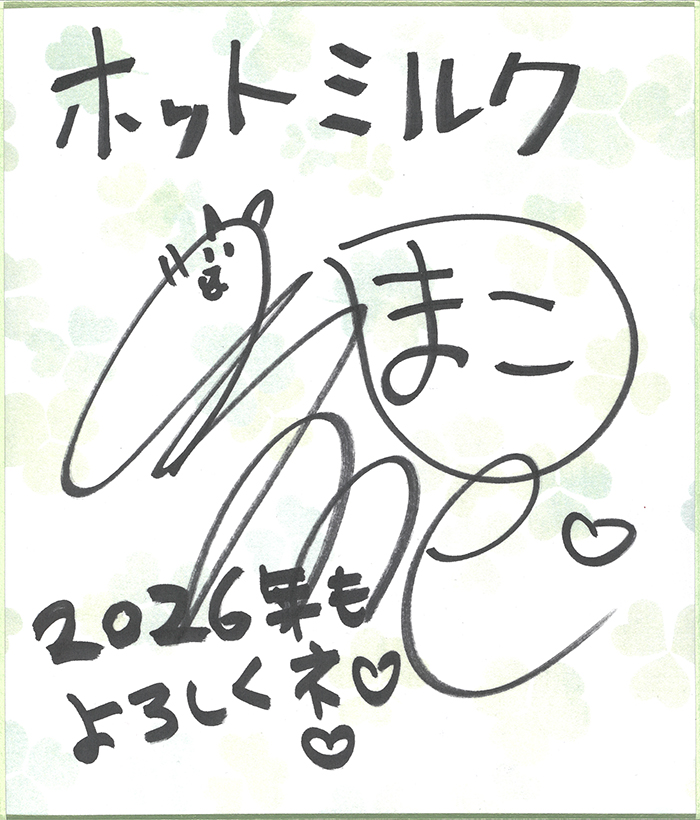 ホットミルク
まこ
2026年も
よろしくネ♡♡